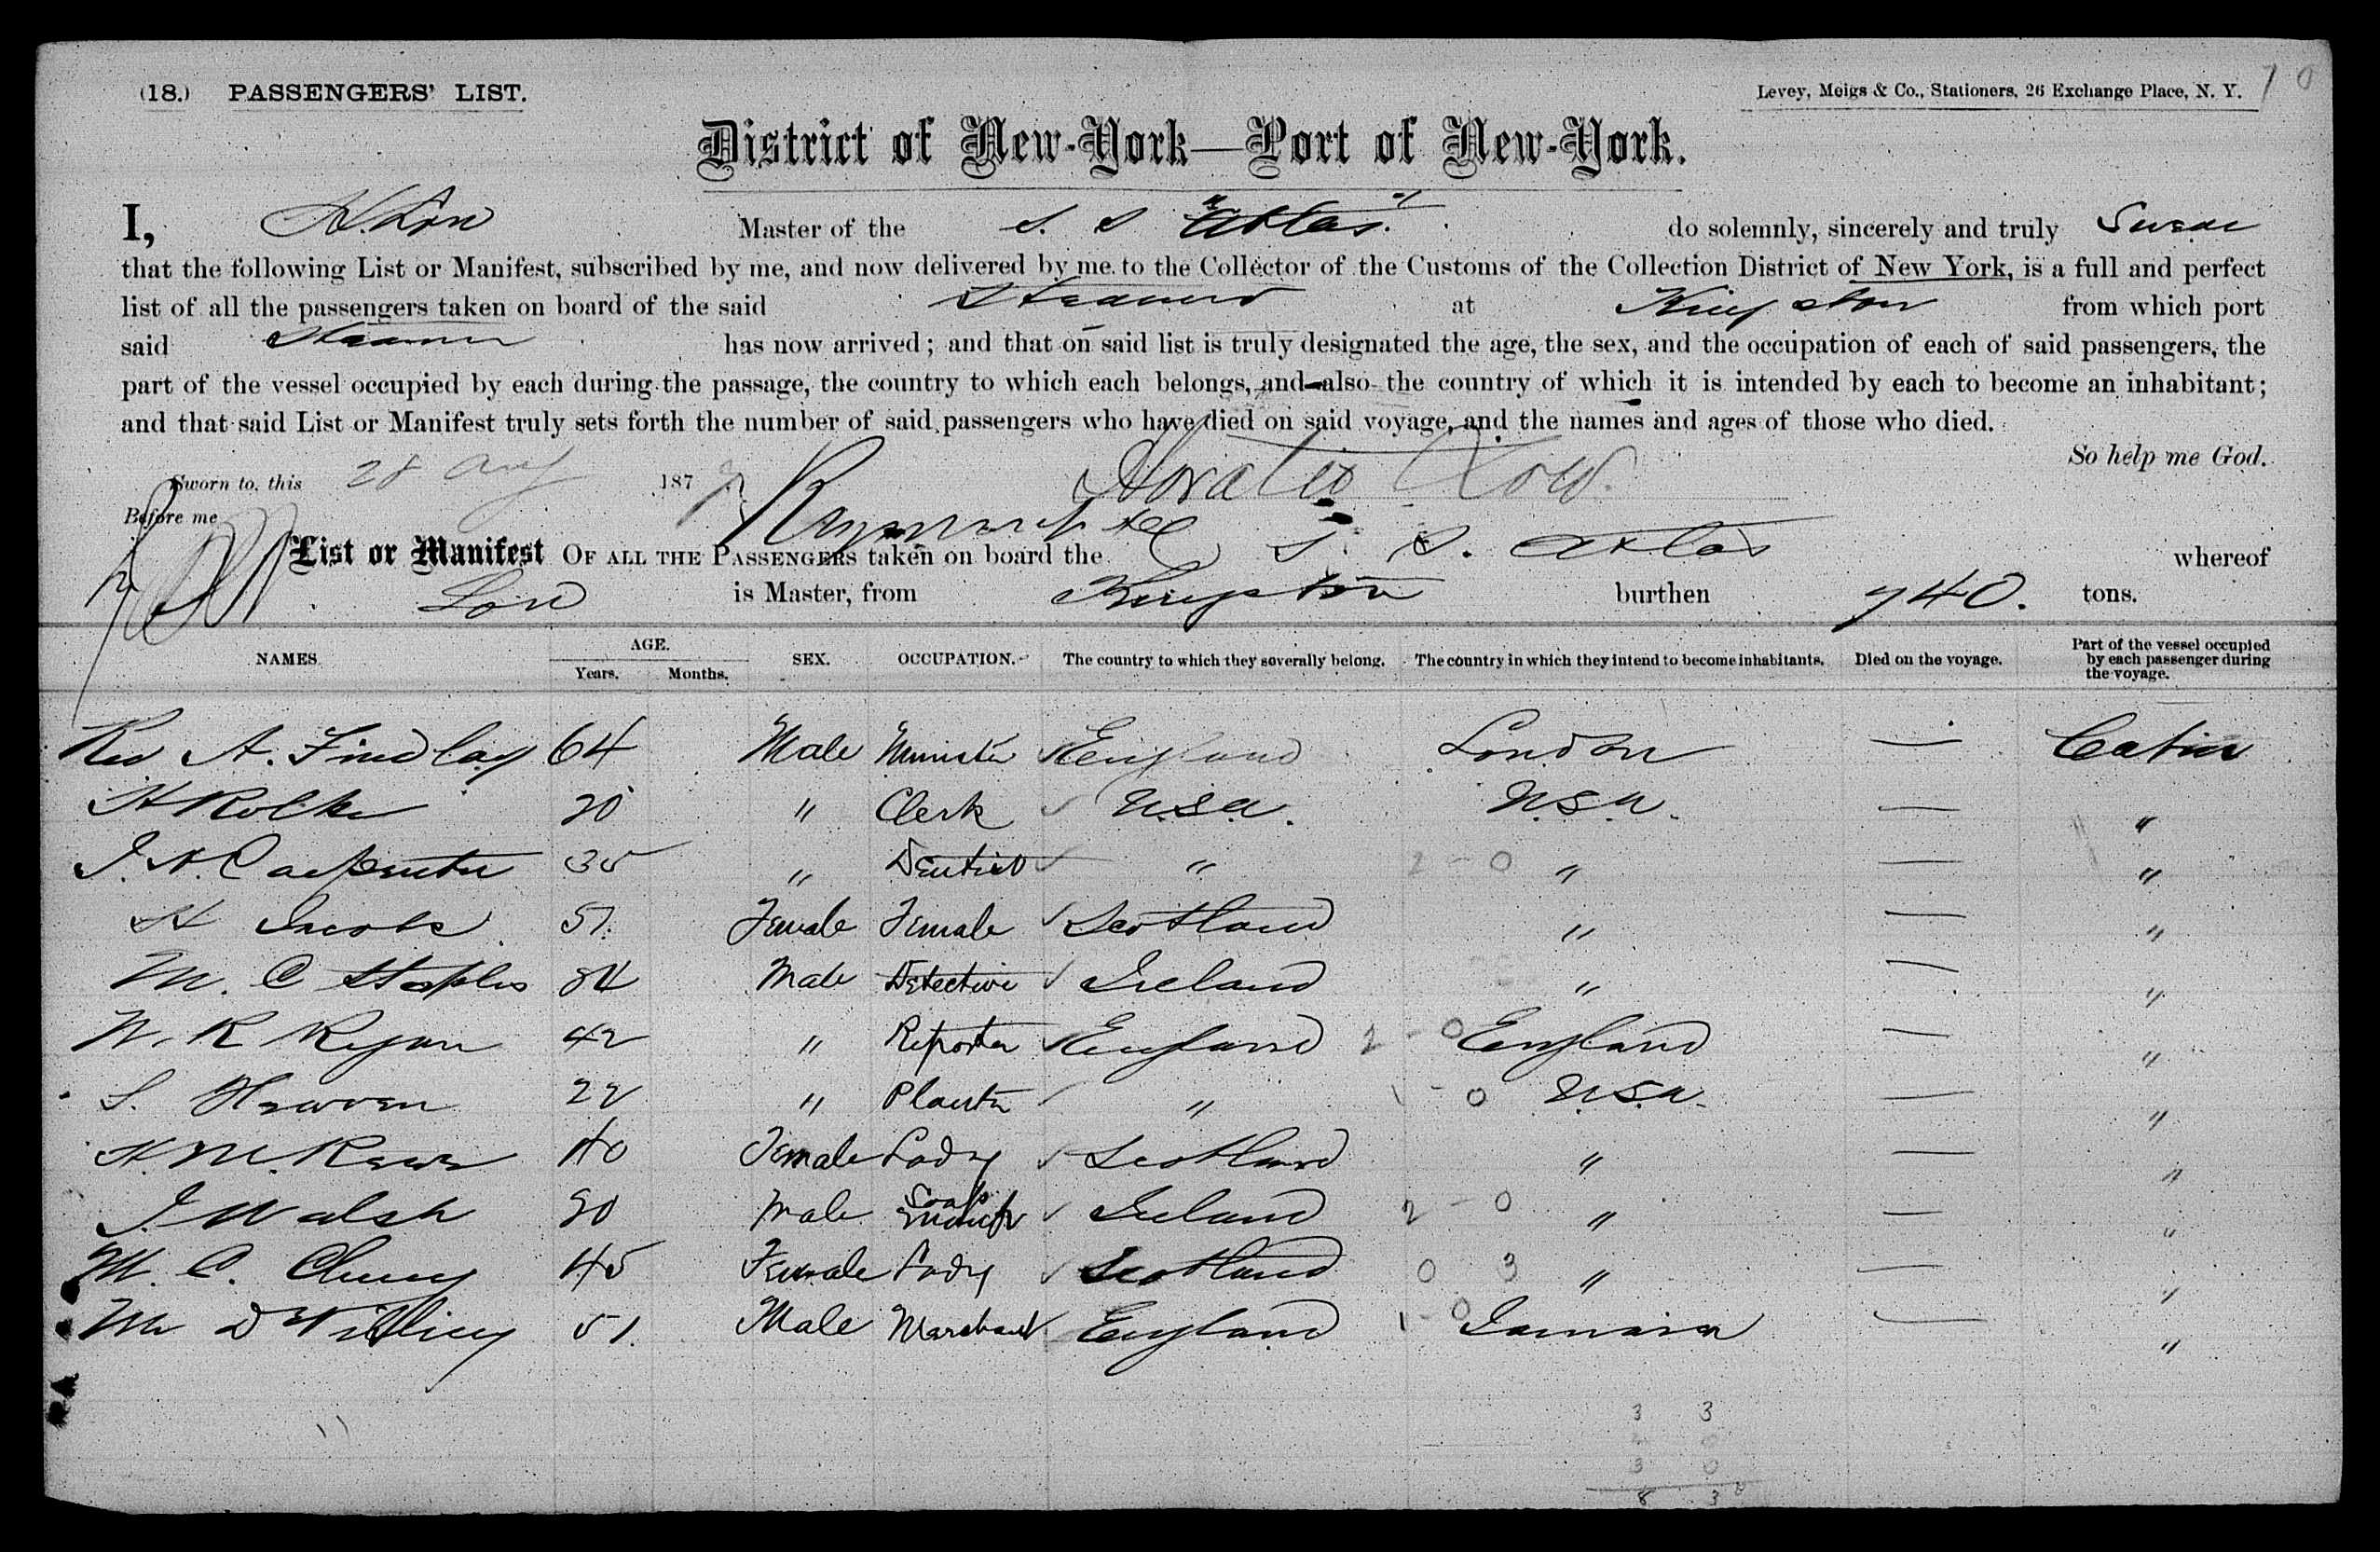 (18.) PASSENGERS' LIST.
Levey, Meigs & Co., Stationers, 26 Exchange Place, N. Y.
District of New-York—Port of New-York.
I, H. Low Master of the S. S "Atlas" do solemnly, sincerely and truly Swear
that the following List or Manifest, subscribed by me, and now delivered by me to the Collector of the Customs of the Collection District of New York, is a full and perfect
list of all the passengers taken on board of the said Steamer at Kingston from which port
said Steamer has now arrived; and that on said list is truly designated the age, the sex, and the occupation of each of said passengers, the
part of the vessel occupied by each during the passage, the country to which each belongs, and also the country of which it is intended by each to become an inhabitant;
and that said List or Manifest truly sets forth the number of said passengers who have died on said voyage, and the names and ages of those who died.
So help me God.
Sworn to, this 28 Aug 187 Horatio Low.
Before me
List or Manifest OF ALL THE PASSENGERS taken on board the S. S. Atlas whereof
Low is Master, from Kingston burthen 740. tons.
NAMES. AGE. Years. Months. SEX. OCCUPATION. The country to which they severally belong. The country in which they intend to become inhabitants. Died on the voyage. Part of the vessel occupied by each passenger during the voyage.
Rev A. Findlay 64 Male Minister England London — Cabin
H 20 " Clerk U.S.A. U.S.A. — "
J. H. Carpenter 35 " Dentist " " — "
H Jacobs 51. Female Female Scotland " — "
M. C Staples 34 Male Detective Ireland " — "
W. R Ryan 42 " Reporter England England — "
S. 22 " Planter " U.S.A. — "
H. M. 40 Female Lady Scotland " — "
J. Walsh 30 male Ireland " — "
M. C. 45 Female Lady Scotland " — "
Mr 51. Male Merchant England Jamaica — "
3 3
3 0
8 3